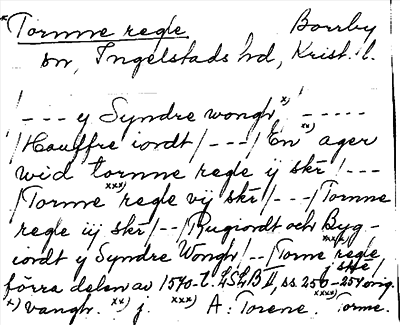 *Torrne regle Borrby
sn, Ingelstads hd, Krist. l.
/--- y Syndre wongh x) -----
/Hauffre iordt/---/En xx) ager
wid tornne regle ij skr/---
/Torne xxx) regle vij skr/---/Tornne
regle iij skr/--/Rugiordt och Byg-
iordt y Syndre Wongh/--/Torne xxxx) regle j skr/,
förra delen av 1570-t. LSLB II, ss. 250-254 orig.
x) vangh. xx) j. xxx) A: Torene. xxxx) Torme.